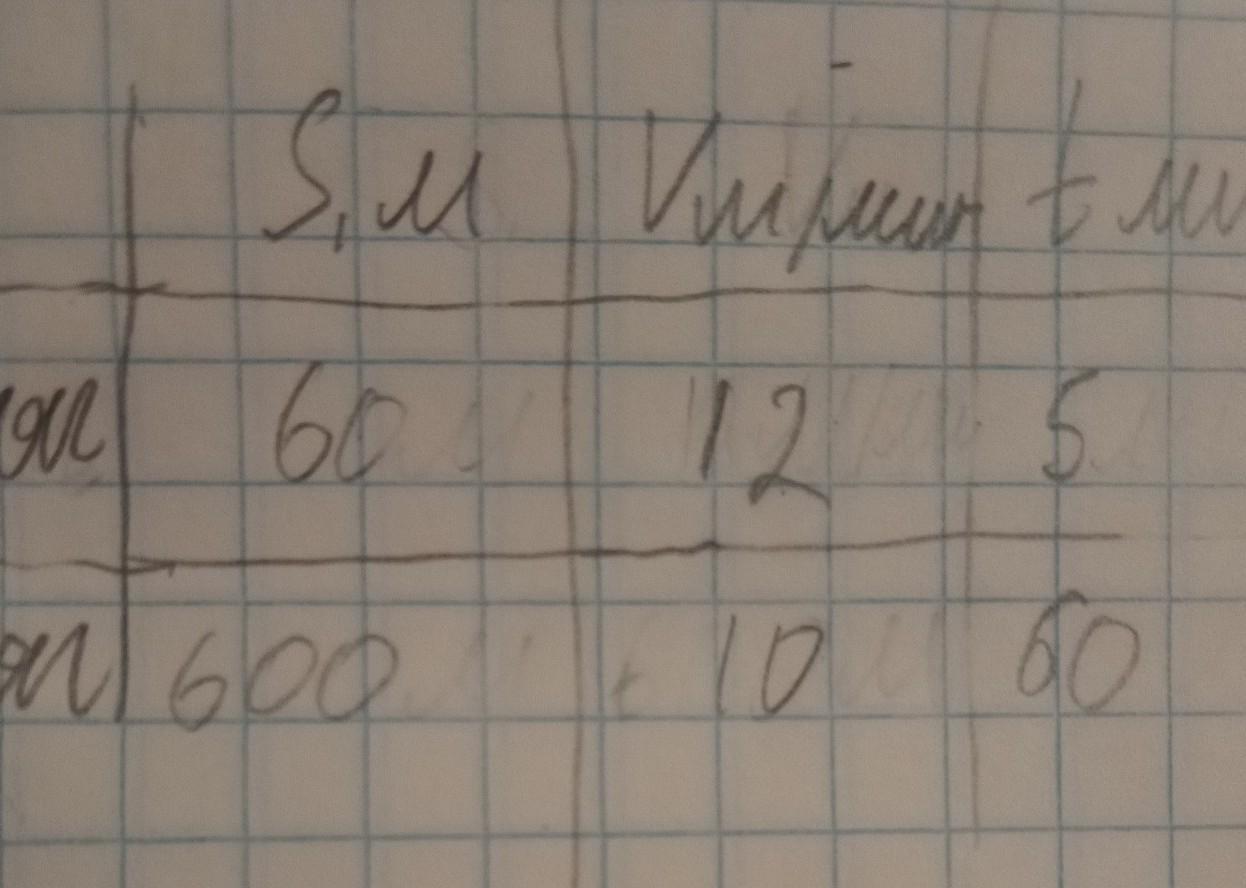 S, м V м/мин t ми
60 12 5
600 10 60